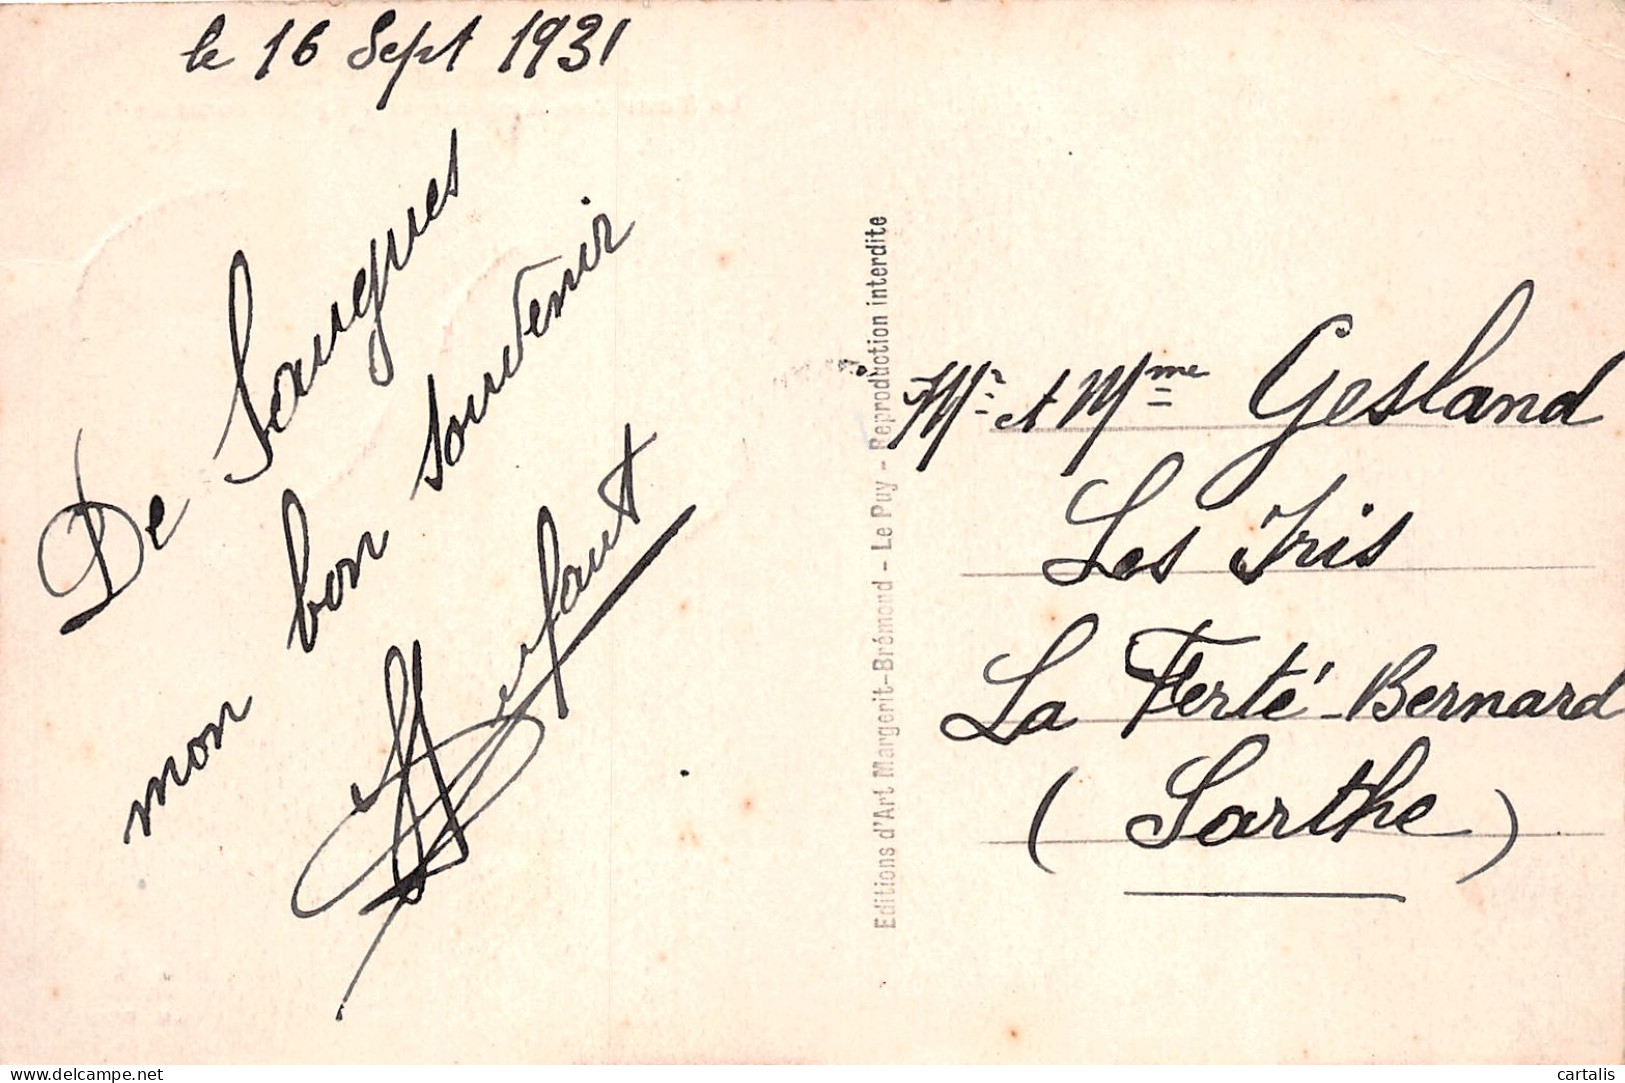 le 16 Sept 1931
De Saugues
mon bon souvenir
Editions d'Art Margerit-Brémond - Le Puy - Reproduction interdite
Mr et Mme Gesland
Les Iris
La Ferté-Bernard
(Sarthe)
delcampe.net
cartalis